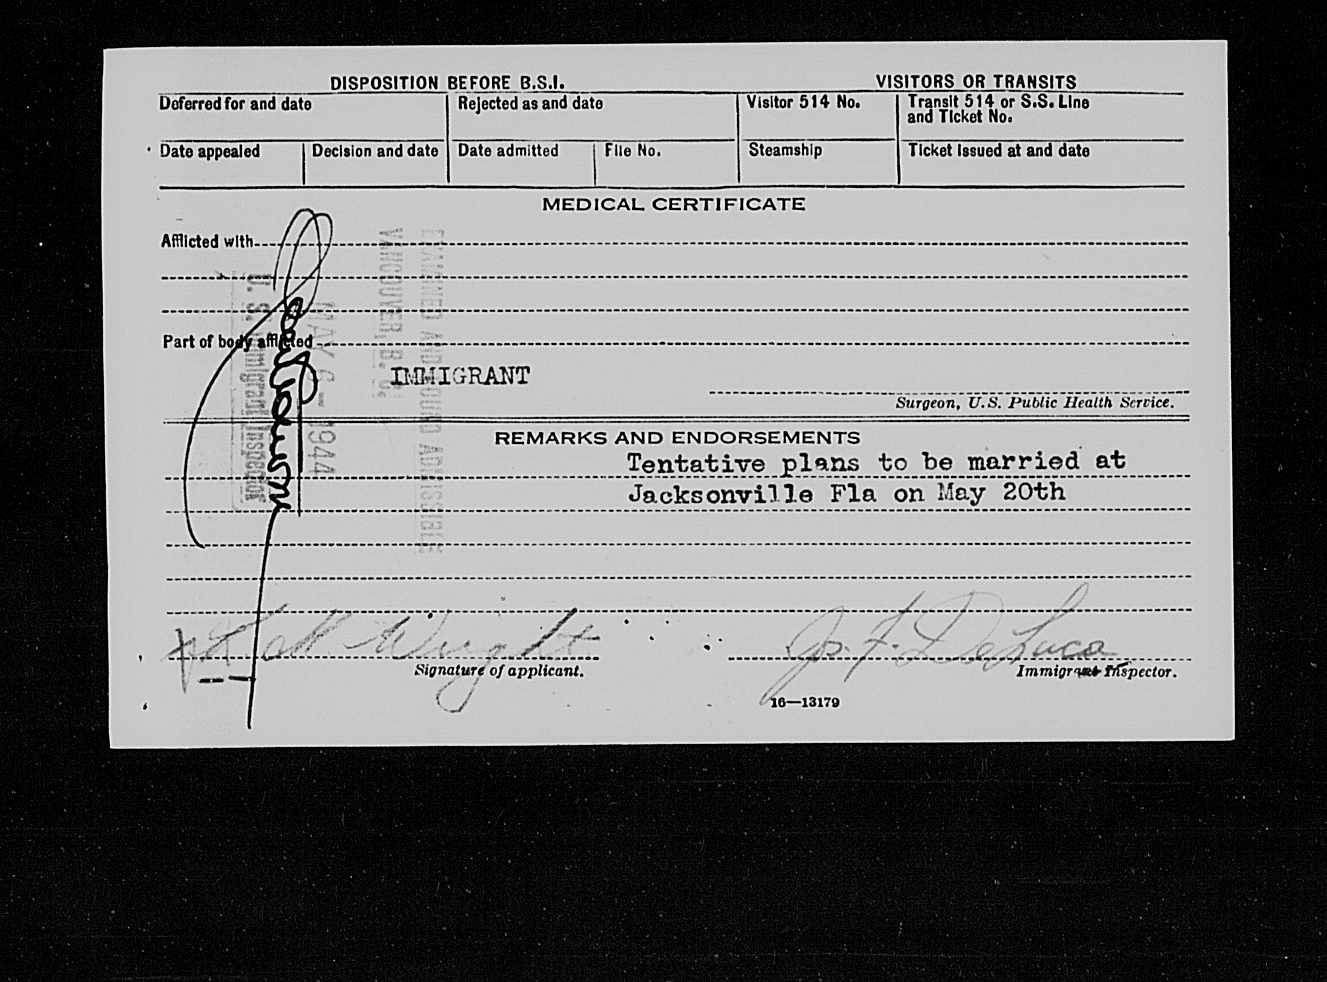 DISPOSITION BEFORE B.S.I. VISITORS OR TRANSITS
Deferred for and date Rejected as and date Visitor 514 No. Transit 514 or S.S. Line
and Ticket No.
Date appealed Decision and date Date admitted File No. Steamship Ticket issued at and date
MEDICAL CERTIFICATE
Afflicted with
Part of body afflicted
IMMIGRANT
Surgeon, U.S. Public Health Service.
EXAMINED AND FOUND ADMISSIBLE
VANCOUVER, B. C.
MAY 6 - 1944
U. S. Immigrant Inspector
REMARKS AND ENDORSEMENTS
Tentative plans to be married at
Jacksonville Fla on May 20th
Wright
Jos. F. DeLuca
Signature of applicant. Immigrant Inspector.
16—13179